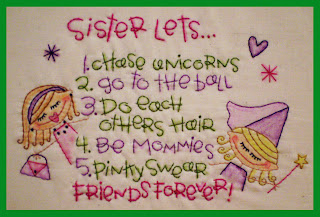 Sister Lets...
1. Chase unicorns
2. go to the ball
3. Do each
others Hair
4. Be Mommies
5. Pinky Swear
Friends Forever!